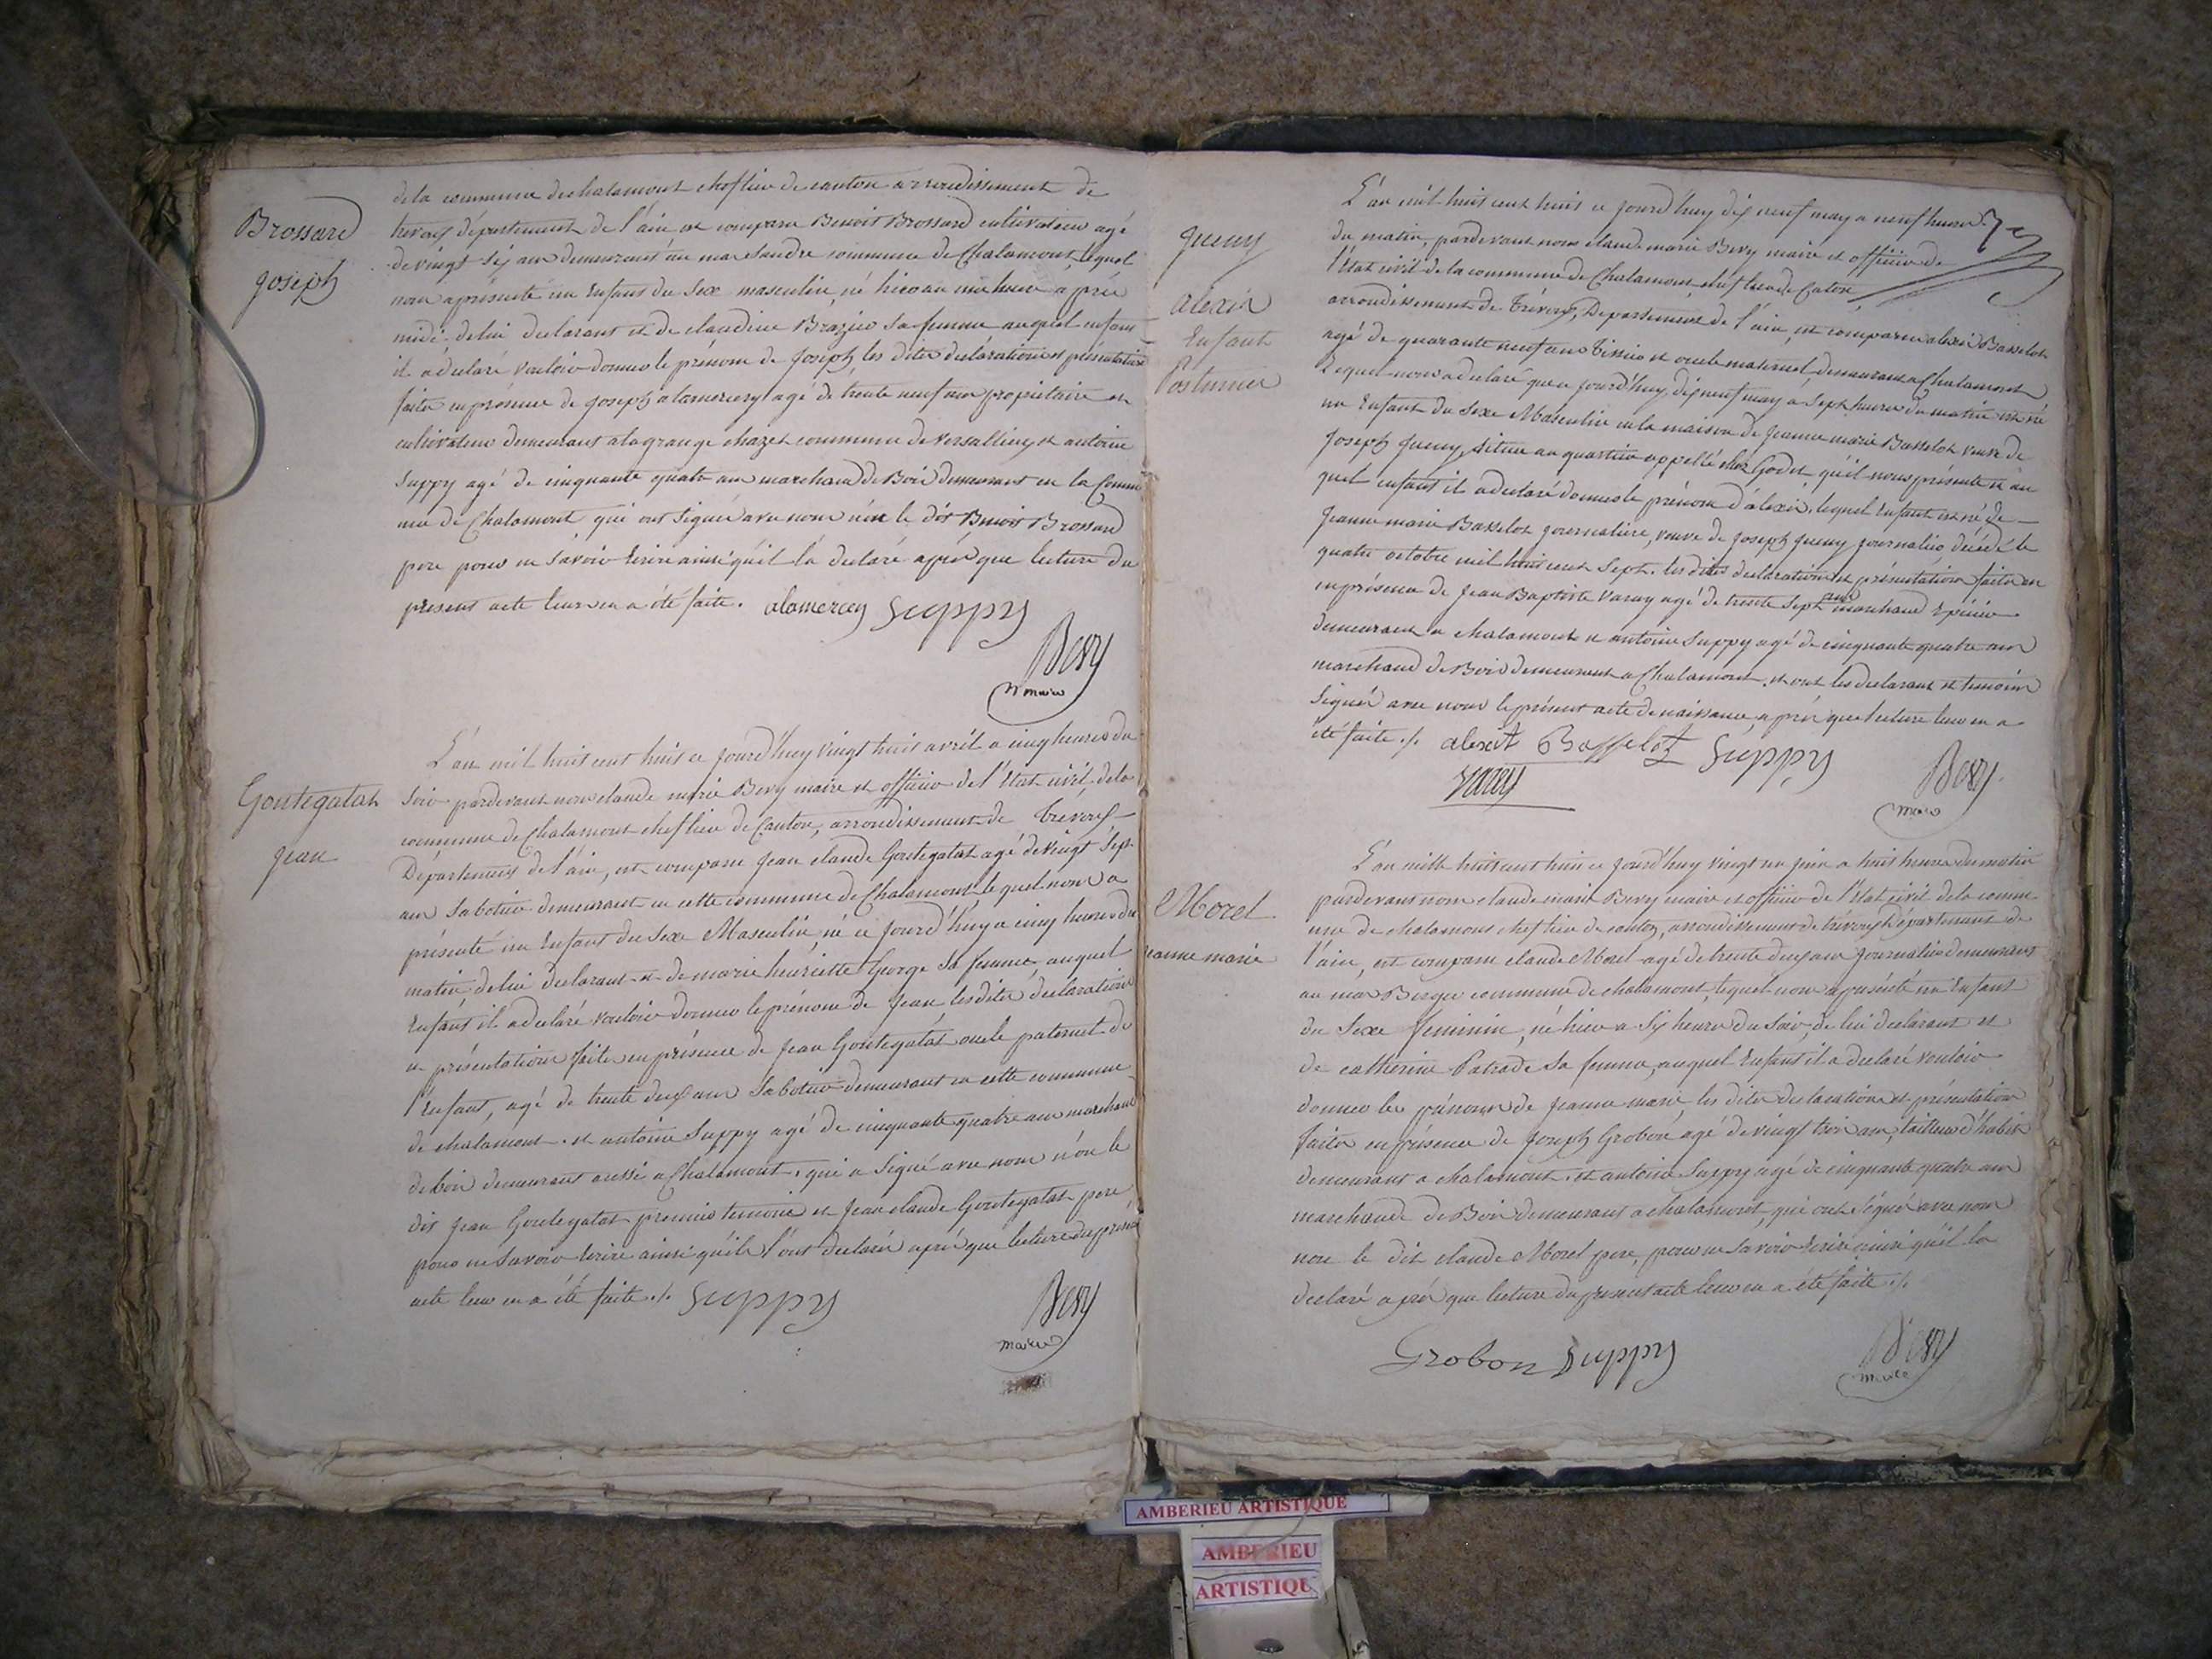 Brossard
joseph
de la commune de chalamont chef lieu de canton arrondissement de
trevoux département de l'ain est comparu Benoit Brossard cultivateur agé
de vingt six ans demeurant au mas commune de Chalamont lequel
nous a présenté un Enfant du Sexe masculin, né hier au une heure après
midi de lui declarant et de claudine Brazier sa femme auquel enfant
il a declaré vouloir donner le prénom de joseph, les dites déclaration et présentation
faites en présence de joseph alamercery agé de trente neuf ans propietaire et
cultivateur demeurant a la grange chazet commune de versailleux et antoine
Suppy agé de cinquante quatre ans marchand de Bois demeurant en la Commu
ne de Chalamont qui ont Signé avec nous non le dit Benoit Brossard
pere pour ne Savoir Ecrire ainsi qu'il la declaré après que lecture du
present acte leur en a été faite. alamercery Suppy
Bery
maire
Goutegatat
jean
L'an mil huit cent huit ce jourd'huy vingt huit avril a cinq heures du
Soir pardevant nous claude marie Bery maire et officier de l'Etat civil de la
commune de Chalamont chef lieu de Canton, arrondissement de Trevoux
Département de l'ain, est comparu jean claude Goutegatat agé de vingt Sept
ans Sabotier demeurant en cette commune de Chalamont, le quel nous a
présenté un Enfant du Sexe Masculin, né ce jourd'huy a cinq heures du
matin de lui declarant et de marie henriette George Sa femme, auquel
Enfant il a declaré vouloir donner le prénom de jean les dites déclaration
et présentation faite en présence de jean Goutegatat oncle paternel de
l'Enfant, agé de trente deux ans Sabotier demeurant en cette commune
de chalamont. et antoine Suppy agé de cinquante quatre ans marchand
de bois demeurant aussi a Chalamont. qui a Signé avec nous n'on le
dit jean Goutegatat premier temoin et jean claude Goutegatat pere
pour ne Savoir Ecrire ainsi qu'ils l'ont declaré après que lecture du présent
acte leur en a été faite ./. Suppy
Bery
maire
jueny
alexis
Enfant
Postumer
L'an mil huit cent huit ce jourd'huy dix neuf may a neuf heures
du matin, pardevant nous claude marie Bery maire et officier de
l'Etat civil de la commune de Chalamont chef lieu de Caton
arrondissement de Trévoux, Département de l'ain, est comparu alexis Basselot
agé de quarante neuf ans Tissier et oncle maternel, demeurant a Chalamont
Lequel nous a declaré que ce jourd'huy dix neuf may a Sept heures du matin est né
un Enfant du Sexe Masculin en la maison de jeanne marie Basselot veuve de
joseph jueny, Située au quartier appellé chez Godet qu'il nous présente et au
quel enfant il a declaré donner le prénom d'alexis. lequel Enfant est né de
jeanne marie Basselot journaliere, veuve de joseph jueny journalier décédé le
quatre octobre mil huit cent Sept. les dites declaration et présentation faites en
en présence de jean Baptiste Varay agé de trente Sept ans marchand Epicier
demeurant a chalamont et antoine Suppy agé de cinquante quatre ans
marchand de Bois demeurant a Chalamont. et ont les declarant et temoins
Signés avec nous le présent acte de naissance, après que lecture leur en a
été faite ./. alexit Basselot Suppy
varay
Bery
maire
Morel
jeanne marie
L'an mille huit cent huit ce jourd'huy vingt un juin a huit heures du matin
pardevant nous claude marie Bery maire et officier de l'Etat civil de la comm
une de chalamont chef lieu de canton, arrondissement de trévoux département de
l'ain, est comparu claude Morel agé de trente deux ans journalier demeurant
au mas commune de chalamont, lequel nous a présenté un Enfant
du Sexe feminin, né hier a Six heures du Soir, de lui declarant et
de catherine Patrade Sa femme, auquel Enfant il a declaré vouloir
donner les prénoms de jeanne marie, les dites declaration et présentation
faites en présence de joseph Grobon agé de vingt trois ans, tailleur d'habit
demeurant a chalamont. et antoine Suppy agé de cinquante quatre ans
marchand de Bois demeurant a chalamont, qui ont Signé avec nous
non le dit claude Morel pere, pour ne Savoir Ecrire ainsi qu'il la
declaré après que lecture du present acte leur en a été faite ./.
Grobon Suppy
Bery
maire
AMBERIEU ARTISTIQUE
AMBERIEU
ARTISTIQU